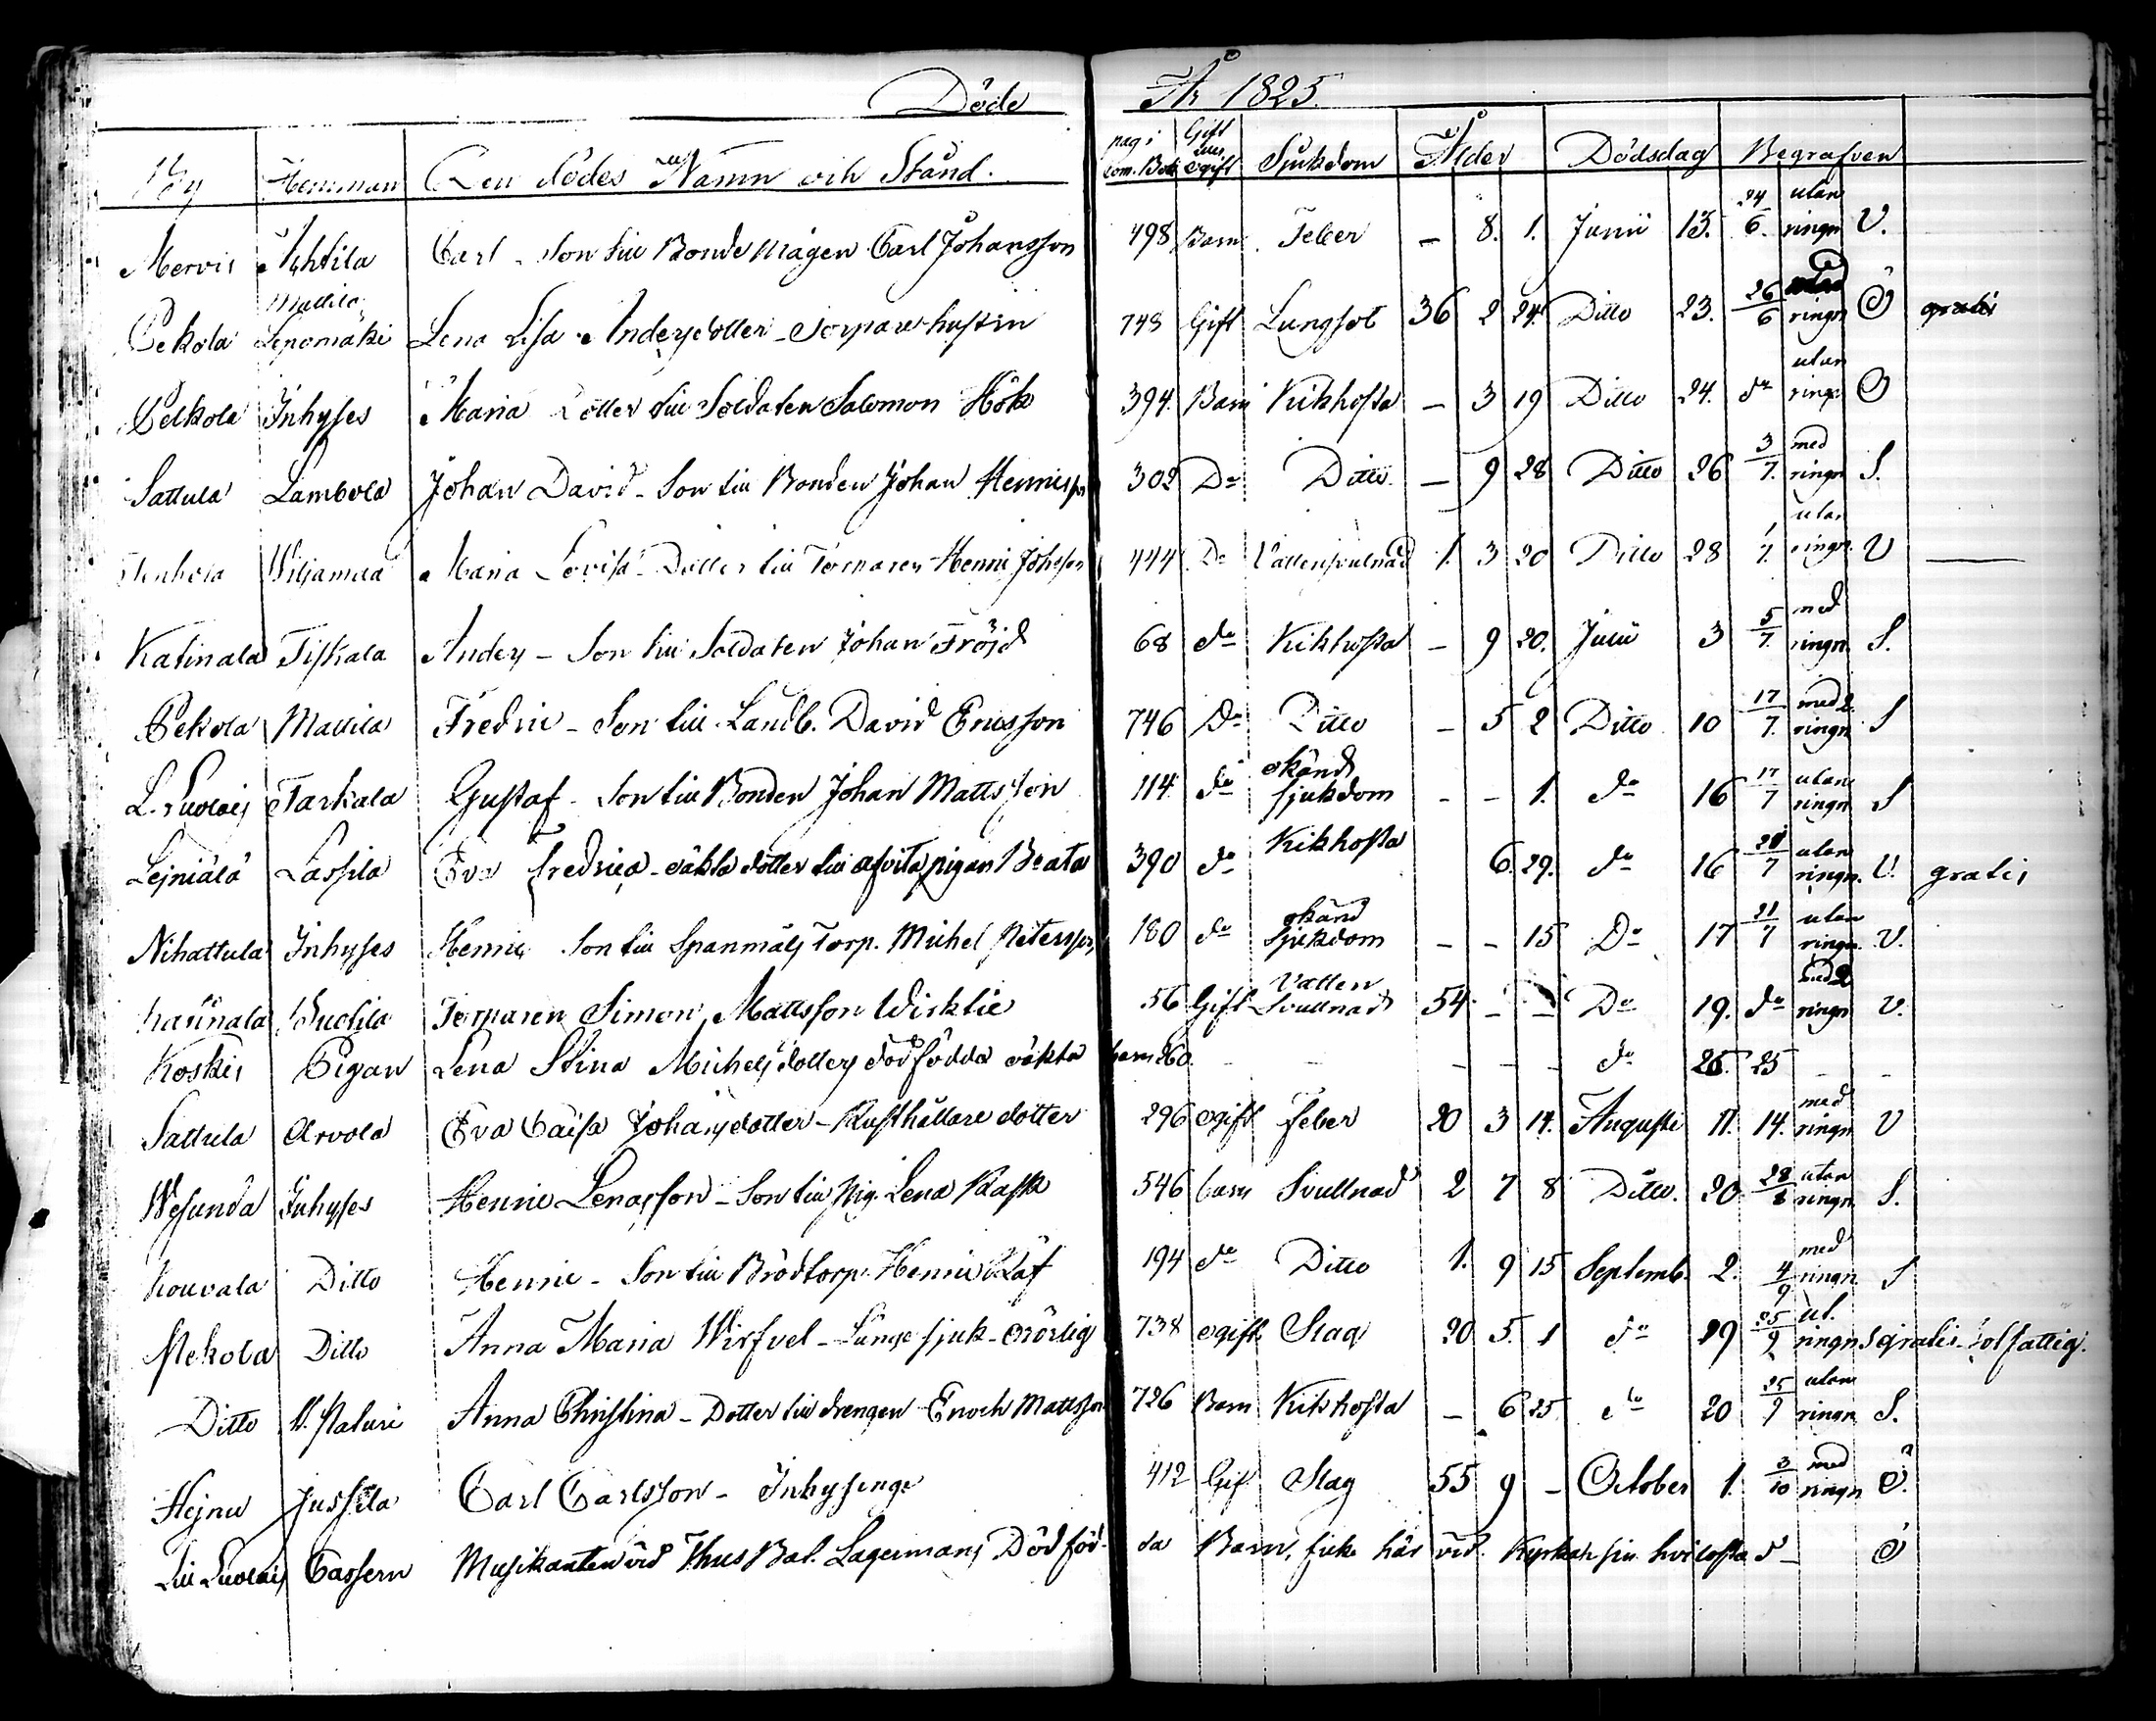 Döde År 1825.
By Hemman Den dödes Namn och Stånd. pag: i com. Bok Gift eller ogift Sjukdom Ålder Dödsdag Begrafven
Mervis Ahtila Carl - Son till Bonde mågen Carl Johansson 498 Barn Feber - 8. 1. Junii 13. 24/6. utan ringn V.
Pekola Mattila Lepomäki Lena Lisa Andersdotter - Torpare hustru 748 Gift Lungsot 36 2 24. Ditto 23. 26/6 ringn Ö gratis
Pelkola Inhyses Maria Dotter till Soldaten Salomon Hök 394. Barn Kikhosta - 3 19 Ditto 24. do utan ringn Ö
Sattula Lambola Johan David - Son till Bonden Johan Henricss 302 Do Ditto. - 9 28 Ditto 26 3/7. med ringn S.
Wiljamaa Maria Lovisa - Dotter till Torparen Henric Johsson 444 Do Vattensvulnad 1. 3 20 Ditto 28 1/7. utan ringn V
Katinala Tiskala Anders - Son till Soldaten Johan Fröjd 68 do Kikhosta - 9 20. Julii 3 5/7. med ringn S.
Pekola Mattila Fredric - Son till Landb. David Ericsson 746 Do Ditto - 5 2 Ditto 10 17/7. med 2 ringn S
L. Luolais Tarkala Gustaf - Son till Bonden Johan Mattsson 114 do okänd sjukdom - - 1. do 16 17/7 utan ringn S
Lejniälä Lassila Eva Fredrica - oäkta dotter till afvita pigan Beata 390 do Kikhosta 6. 29. do 16 /7 utan ringn. V. gratis
Nihattula Inhyses Henric Son till Spanmåls Torp. Michel Petersson 180 do okänd Sjukdom - - 15 Do 17 21/7 utan ringn. V.
Katinala Torparen Simon Mattsson Wicklie 56 Gift Vatten Svullnad 54 - - Do 19. do med 2 ringn V.
Koskis Pigan Lena Stina Michelsdotters dödfödda oäkta barn 260. - - - - - do 25. 25 - -
Sattula Arvola Eva Caisa Johansdotter - Rusthållare dotter 296 ogift feber 20 3 14. Augusti 11. 14. med ringn V
Wesunda Inhyses Henric Lenasson - Son till Pig. Lena Rask 546 barn Svullnad 2 7 8 Ditto. 20 28/8 utan ringn S.
Kouvala Ditto Henric - Son till Brödtorp. Henric Räf 194 do Ditto 1. 9 15 Septemb. 2. 4/9 med ringn S
Mekola Ditto Anna Maria Wirfvel - Länge sjuk - orörlig 738 ogift Slag 20 5. 1 do 19 25/9 ut. ringn S gratis - fattig.
Ditto Anna Christina - Dotter till drengen Enoch Mattsson 726 Barn Kikhosta - 6 25 do 20 25/9 utan ringn S.
Hejnu Jussila Carl Carlsson - Inhysenge 412 Gift Slag 55 9 - October 1. 3/10 med ringn Ö.
Lill Luolais Cassern Musikanten vid Thus Bat. Lagermans Död föd- da Barn, fick här vid Kyrkan sin hvilostad - Ö